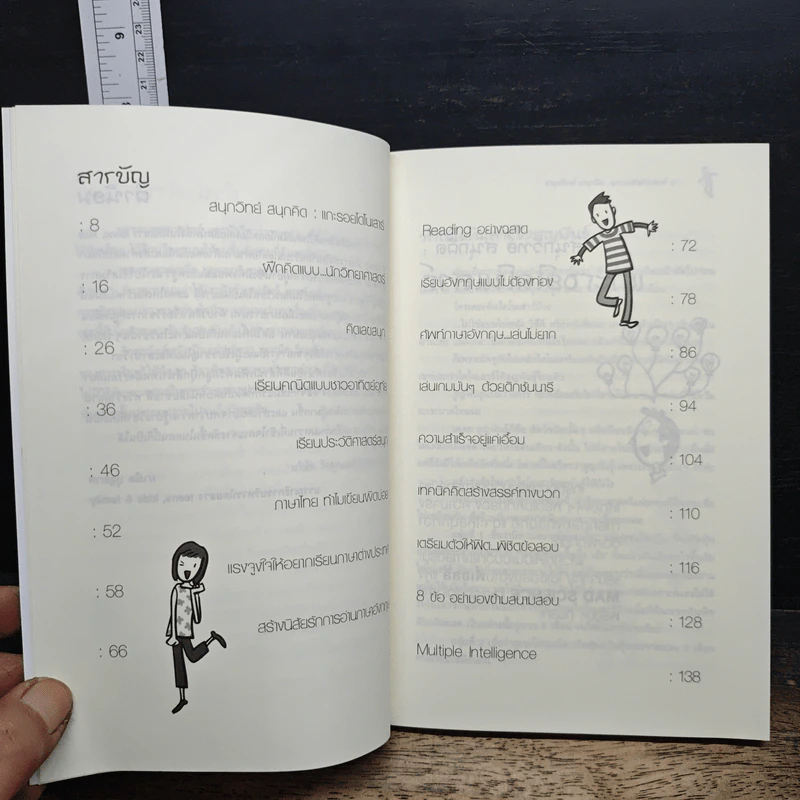 สารบัญ
สนุกวิทย์ สนุกคิด : แกะรอยไดโนเสาร์
: 8
ฝึกคิดแบบ...นักวิทยาศาสตร์
: 16
คิดเลขสนุก
: 26
เรียนคณิตแบบชาวอาทิตย์อุทัย
: 36
เรียนประวัติศาสตร์สนุก
: 46
ภาษาไทย ทำไมเขียนผิดบ่อย
: 52
แรงจูงใจให้อยากเรียนภาษาต่างประเทศ
: 58
สร้างนิสัยรักการอ่านภาษาอังกฤษ
: 66
Reading อย่างฉลาด
: 72
เรียนอังกฤษแบบไม่ต้องท่อง
: 78
ศัพท์ภาษาอังกฤษ...เล่นไม่ยาก
: 86
เล่นเกมมันๆ ด้วยดิกชันนารี
: 94
ความสำเร็จอยู่แค่เอื้อม
: 104
เทคนิคคิดสร้างสรรค์ทางบวก
: 110
เตรียมตัวให้ฟิต...พิชิตข้อสอบ
: 116
8 ข้อ อย่ามองข้ามสนามสอบ
: 128
Multiple Intelligence
: 138